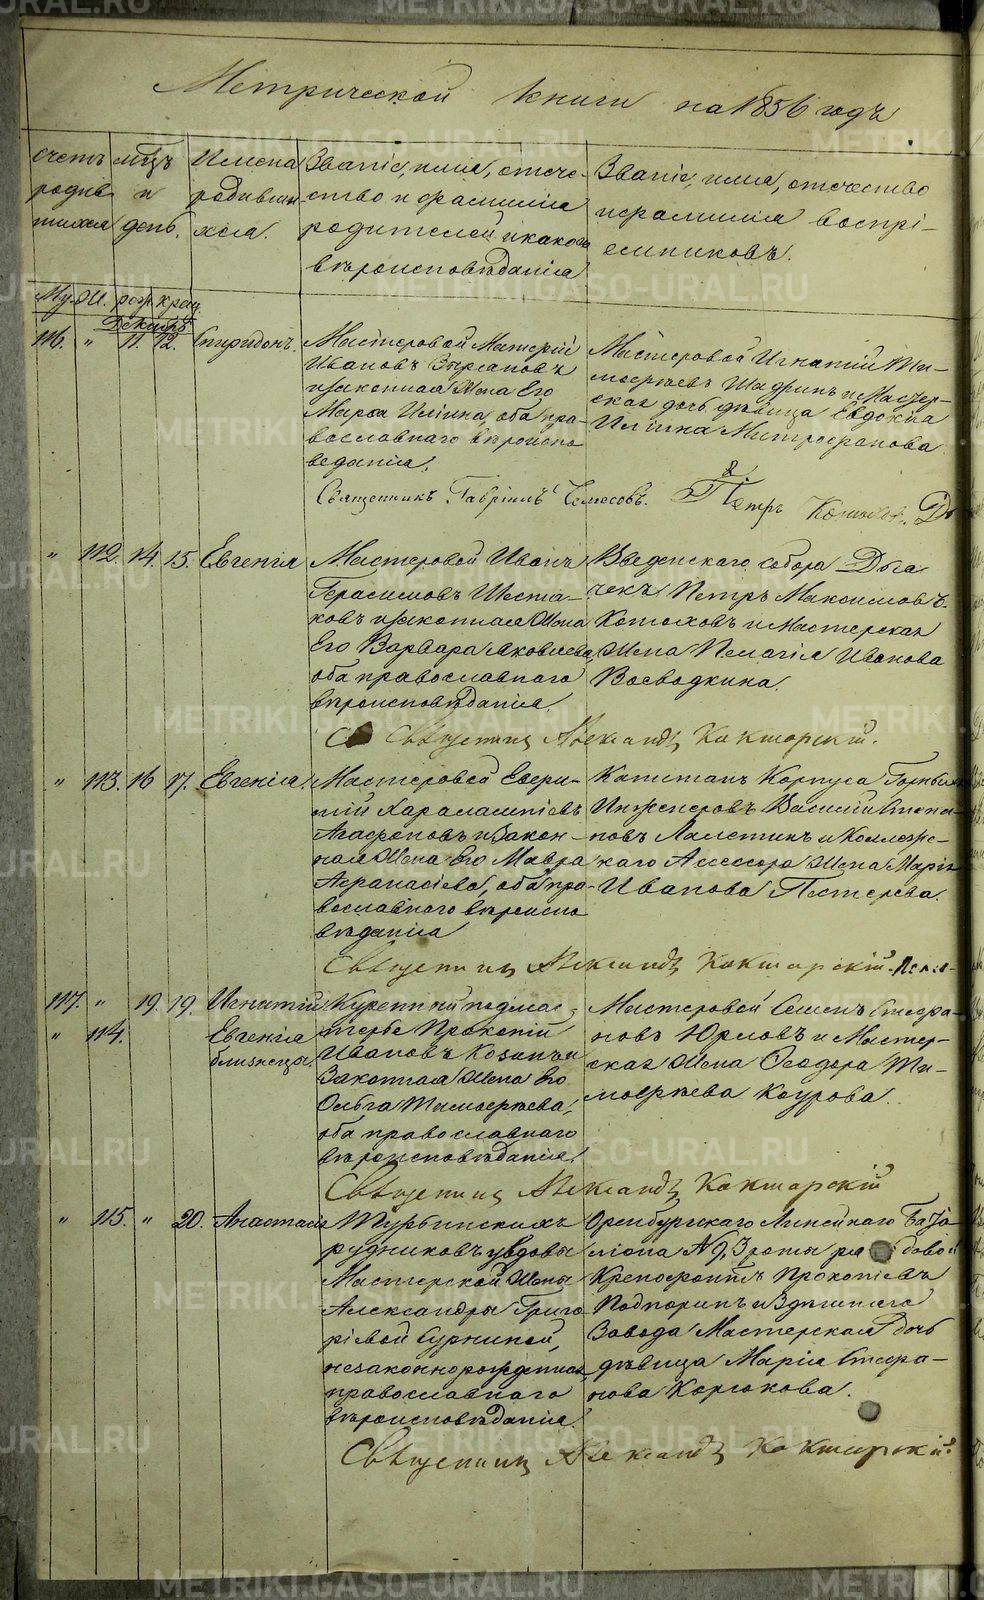 Метрической книги на 1856 годъ
Счетъ родив шихся
мѣцъ и день.
Имена родивших хся.
Званіе, имя, отече-
ство и фамилія
родителей и какого
вѣроисповѣданія
Званіе, имя, отечество
и фамилія воспрі-
емниковъ.
Му. Ж. рож. крещ.
Декабрь
116. " 11. 12. Спиридонъ.
Мастеровой
Ивановъ
и законная жена Его
Марѳа Ильина, оба пра-
вославнаго вѣроиспо
веданія.
Мастеровой Игнатій Ти-
моѳѣевъ Шадринъ и Мастер-
ская дочь дѣвица Евдокія
Ильина Митрофанова
Священникъ Гавріилъ
Петръ
" 112. 14. 15. Евгенія
Мастеровой Иванъ
Герасимовъ Шеста-
ковъ и законная жена
Его Варвара Яковлева,
оба православнаго
вѣроисповѣданія.
Введенскаго собора Дья
чекъ Петръ Максимовъ
Котюховъ и Мастерская
жена Пелагія Иванова
Воеводкина.
Священник Александр Кокшарскій.
" 113. 16 17. Евгенія.
Мастеровой Евфи-
мій Харалампіевъ
Агафоновъ и Закон-
ная жена Его Мавра
Афанасіева, оба пра-
вославнаго вѣроиспо
вѣданія
Капитанъ Корпуса Горныхъ
Инженеровъ Василій Степа-
новъ Лалетинъ и Коллежс-
каго Ассесора жена Марія
Иванова Пестерева.
Священник Александр Кокшарскій.
117. " 19. 19. Игнатій
" 114. Евгенія
близнецы.
Куренный подмас-
терье Прокопій
Ивановъ Козинъ и
Законная жена Его
Ольга Тимоѳѣева,
оба православнаго
вѣроисповѣданія.
Мастеровой Семенъ Стефа-
новъ Юрловъ и Мастер-
ская жена Ѳеодора Ти-
моѳѣева Каурова.
Священник Александр Кокшарскій
" 115. " 20. Анастасія
Турьинскихъ
рудниковъ у вдовы
Мастерской жены
Александры Григо
рьевой Сурниной,
незаконнорожденная,
православнаго
вѣроисповѣданія.
Оренбургскаго Линейнаго Бата
ліона № 9, 3 роты рядовой
Прокопіевъ
Подпоринъ и Здѣшняго
Завода Мастерская дочь
дѣвица Марія Стефа-
нова Корюкова.
Священник Александр Кокшарскій.
METRIKI.GASO-URAL.RU